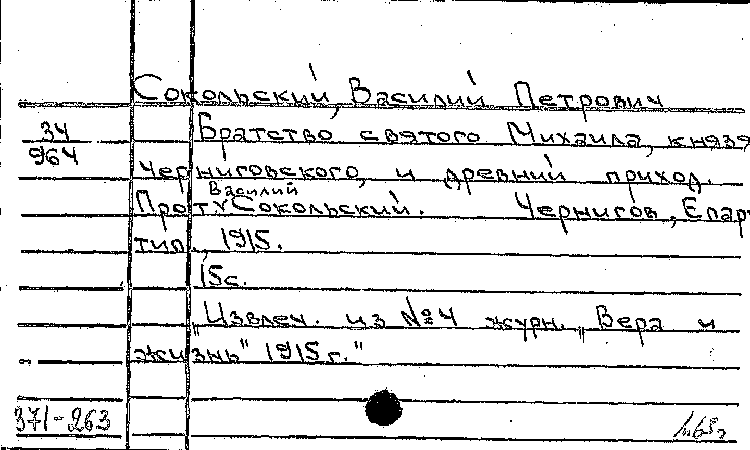 Сокольский, Василий Петрович
34
964
Братство святого Михаила, князя
Черниговского, и древний приход.
Прот. Василий Сокольский. Чернигов, Епар
тип., 1915.
15с.
"Извлеч. из №4 журн. „Вера и
жизнь" 1915г."
371-263